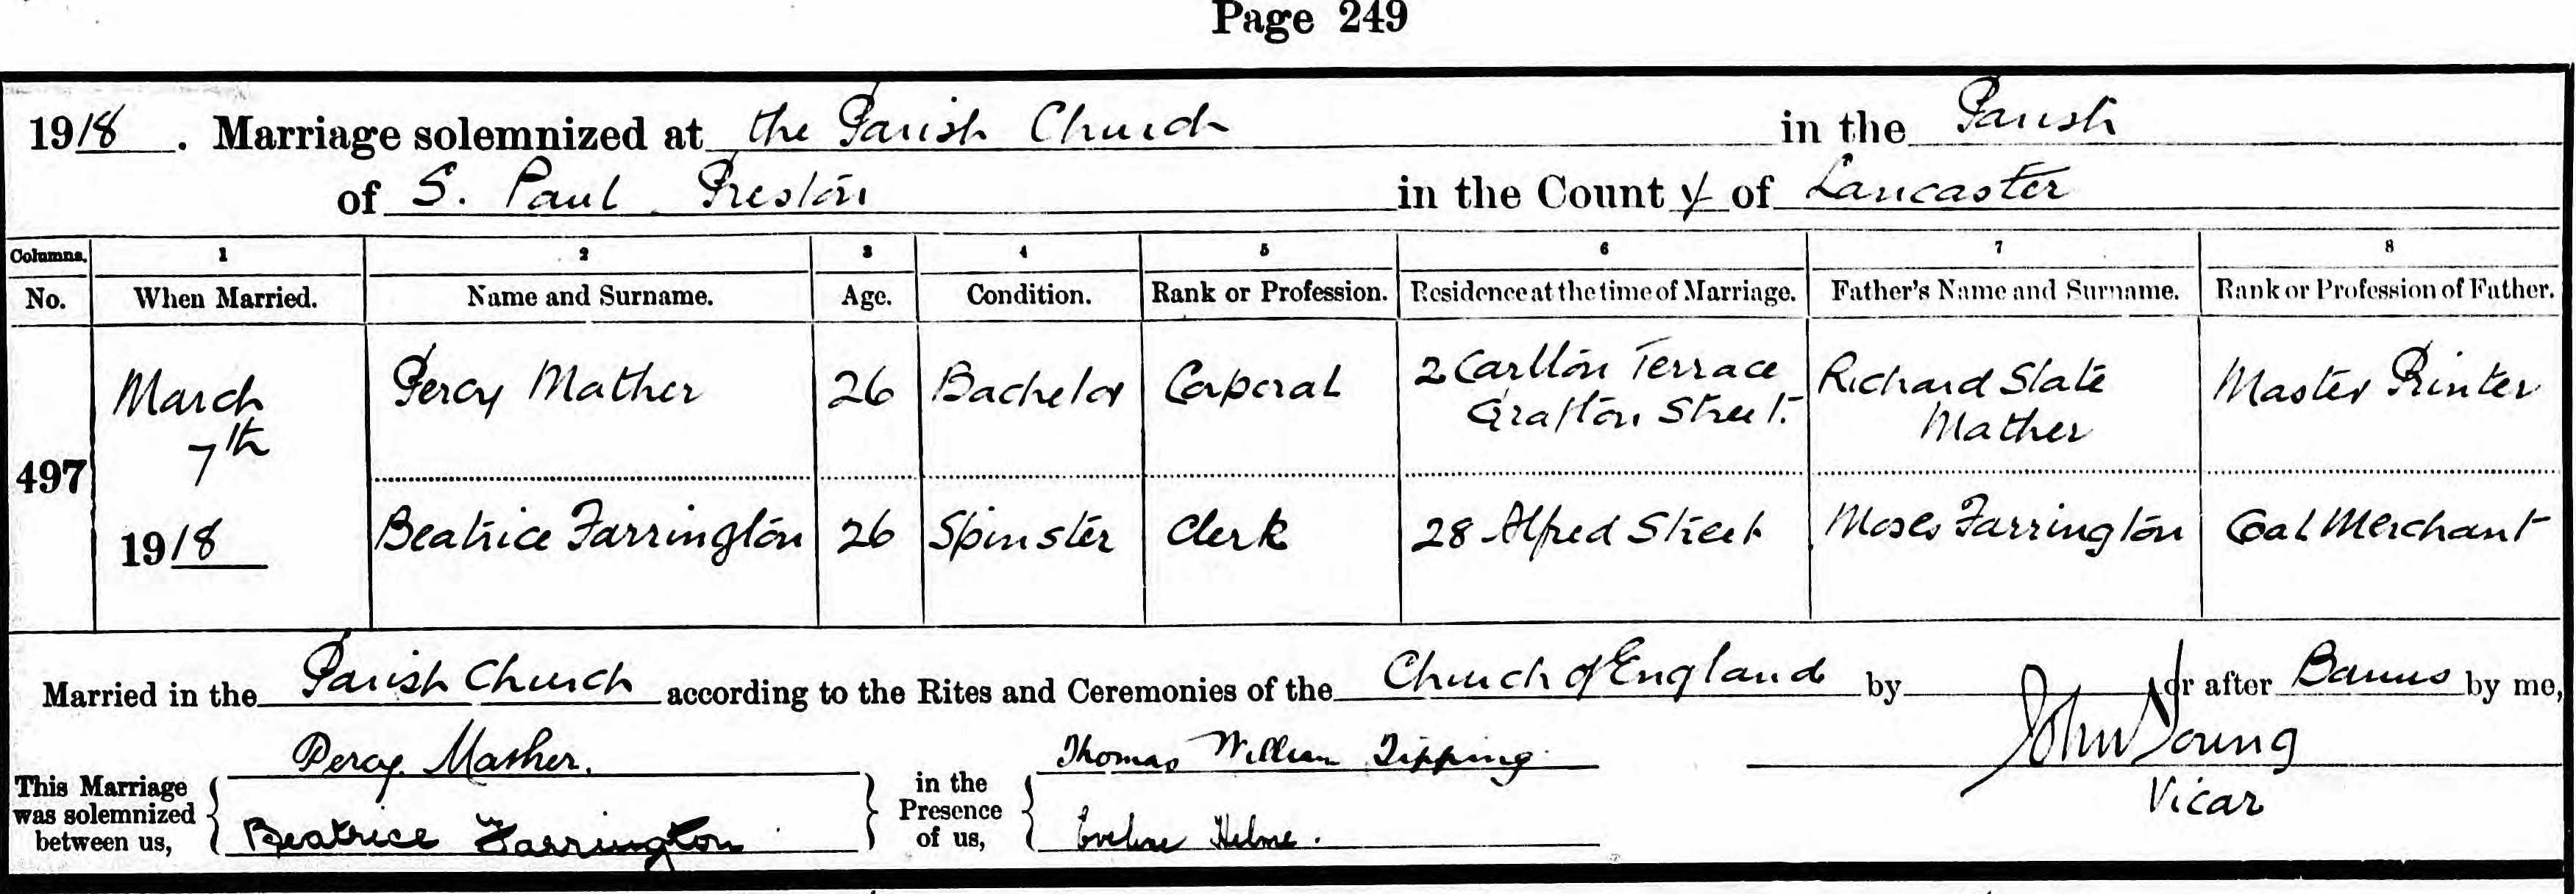 Page 249
1918. Marriage solemnized at the Parish Church in the Parish
of S. Paul Preston in the County of Lancaster
Columns. 1 2 3 4 5 6 7 8
No. When Married. Name and Surname. Age. Condition. Rank or Profession. Residence at the time of Marriage. Father's Name and Surname. Rank or Profession of Father.
497 March 7th 1918
Percy Mather 26 Bachelor Corporal 2 Carlton Terrace Grafton Street. Richard Slate Mather Master Printer
Beatrice Farrington 26 Spinster Clerk 28 Alfred Street Moses Farrington Coal Merchant
Married in the Parish Church according to the Rites and Ceremonies of the Church of England by or after Banns by me,
John Young
Vicar
This Marriage was solemnized between us, Percy Mather. Beatrice Farrington
in the Presence of us, Thomas William Tipping. Eveline Helme.